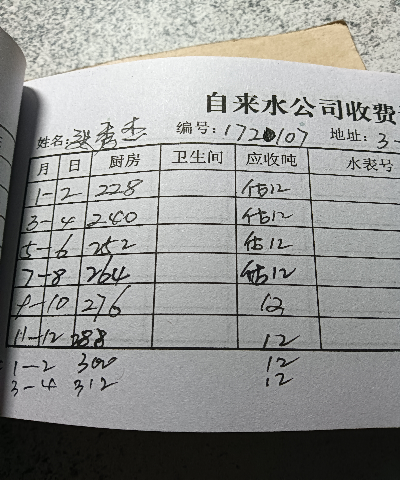 自来水公司收费
姓名: 秀杰 编号: 172 107 地址: 3-
月 日 厨房 卫生间 应收吨 水表号
1-2 228 估12
3-4 240 估12
5-6 252 估12
7-8 264 估12
9-10 276 12
11-12 288 12
1-2 300 12
3-4 312 12